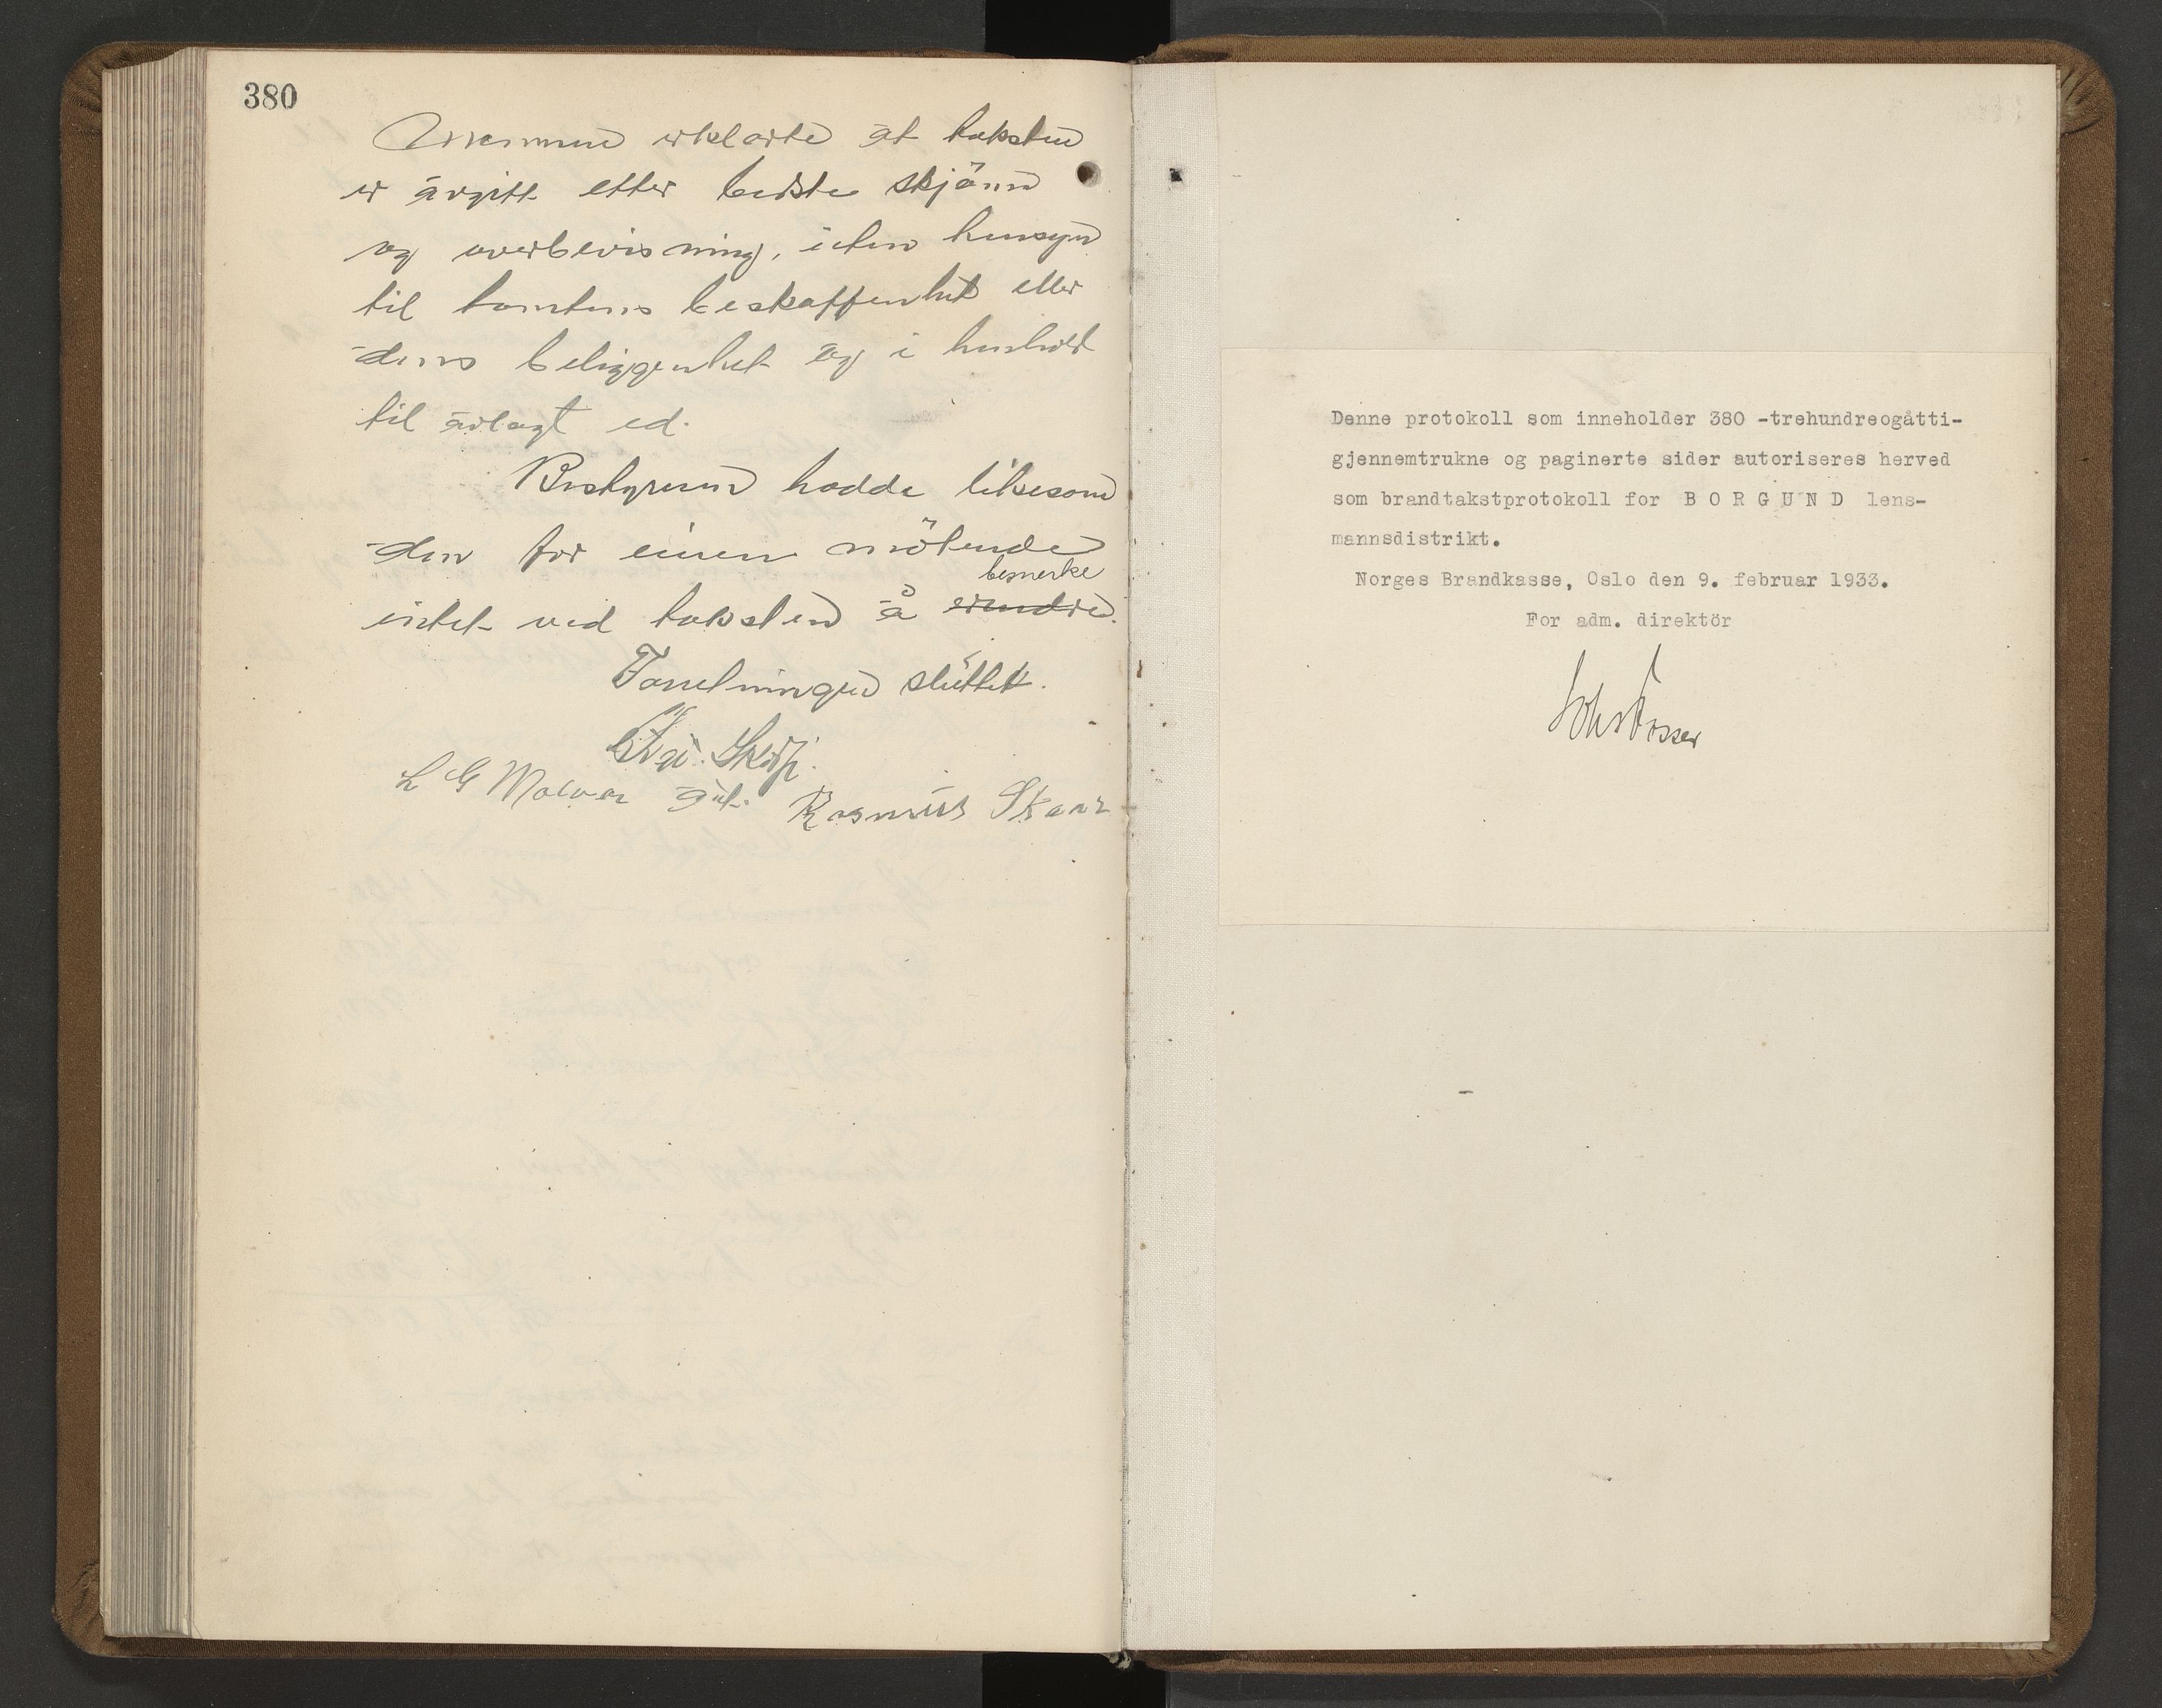 380
Mennene erklærte at taksten
er avgitt efter bedste skjönn
og overbevisning, uten hensyn
til tomtens beskaffenhet eller
dens beliggenhet og i henhold
til avlagt ed.
Bestyreren hadde likesom
den for eieren mötende
bemerke
intet ved taksten å erindre.
Forretningen sluttet.
L G Molvær Rasmus Skaar
Denne protokoll som inneholder 380 -trehundreogåtti-
gjennemtrukne og paginerte sider autoriseres herved
som brandtakstprotokoll for B O R G U N D lens-
mannsdistrikt.
Norges Brandkasse, Oslo den 9. februar 1933.
For adm. direktör